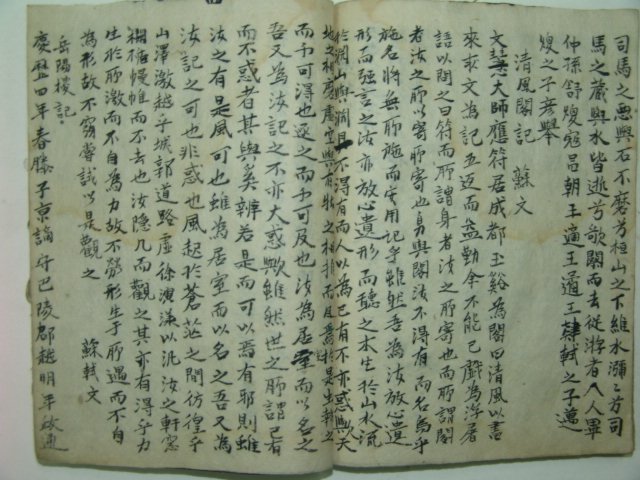 司馬之惡與石不磨芳桓山之下維水瀰〻芳司
馬之藏與水皆逝兮歌闋而去從游者八人畢
仲孫舒煥寇昌朝王適王遹王肄軾之子邁
煥之子彦舉
清風閣記 蘇文
文慧大師應符居成都玉谿為閣曰清風以書
來求文為記五返而益勤余不能已戲為浮屠
語以問之曰符而所謂身者汝之所寄也而所謂閣
者汝之所以寄所寄也身與閣汝不得有而名烏乎
施名將無所施而安用記乎雖然吾為汝放心遺
形而强言之汝亦放心遺形而聽之木生於山水流
於淵山與淵且不得有而人以為已有不亦惑與天
地之相磨虛空與有物之相推而風於是生執之
而不可得也逐之而不可及也汝為居室而以名之
吾又為汝記之不亦大惑歟雖然世之所謂已有
而不惑者其與奚辨若是而可以為有耶則雖
汝之有是風可也雖為居室而以名之吾又為
汝記之可也非惑也風起於蒼茫之間彷徨乎
山澤激越乎城郭道路虛徐演漾以汎汝之軒窓
欄楯幔帷而不去也汝隐几而觀之其亦有得乎力
生於所激而不自為力故不勞形生于所遇而不自
為形故不窮嘗試以是觀之 蘇軾文
岳陽樓記
慶曆四年春滕子京謫守巴陵郡越明年政通